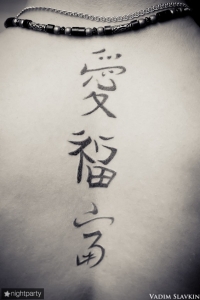 愛
福
富
nightparty
VADIM SLAVKIN